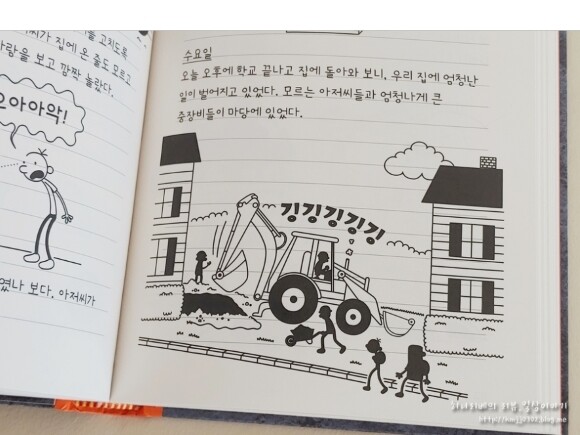 고치도록
집에 온 줄도 모르고
사람을 보고 깜짝 놀랐다.
으아아악!
였나 보다. 아저씨가
수요일
오늘 오후에 학교 끝나고 집에 돌아와 보니, 우리 집에 엄청난
일이 벌어지고 있었다. 모르는 아저씨들과 엄청나게 큰
중장비들이 마당에 있었다.
깅깅깅깅깅